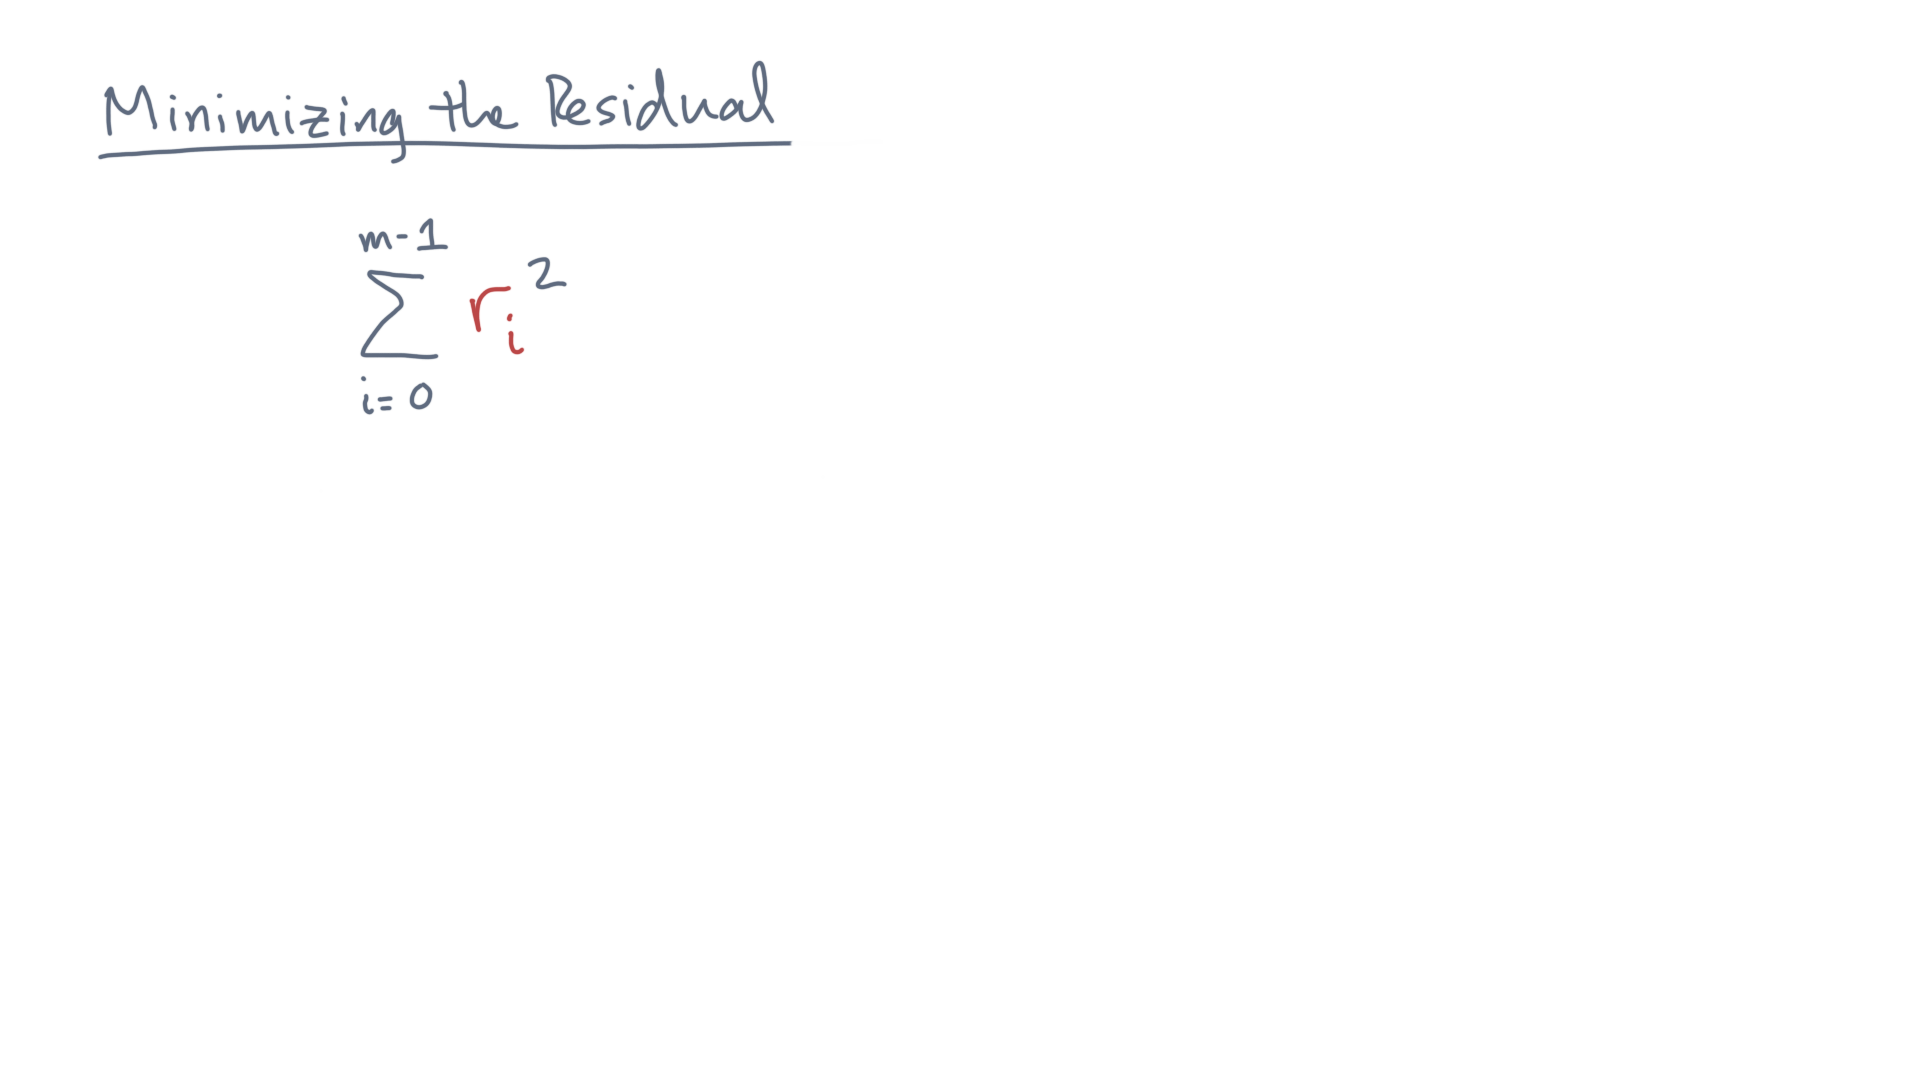 Minimizing the Residual
m-1
∑ rᵢ²
i=0